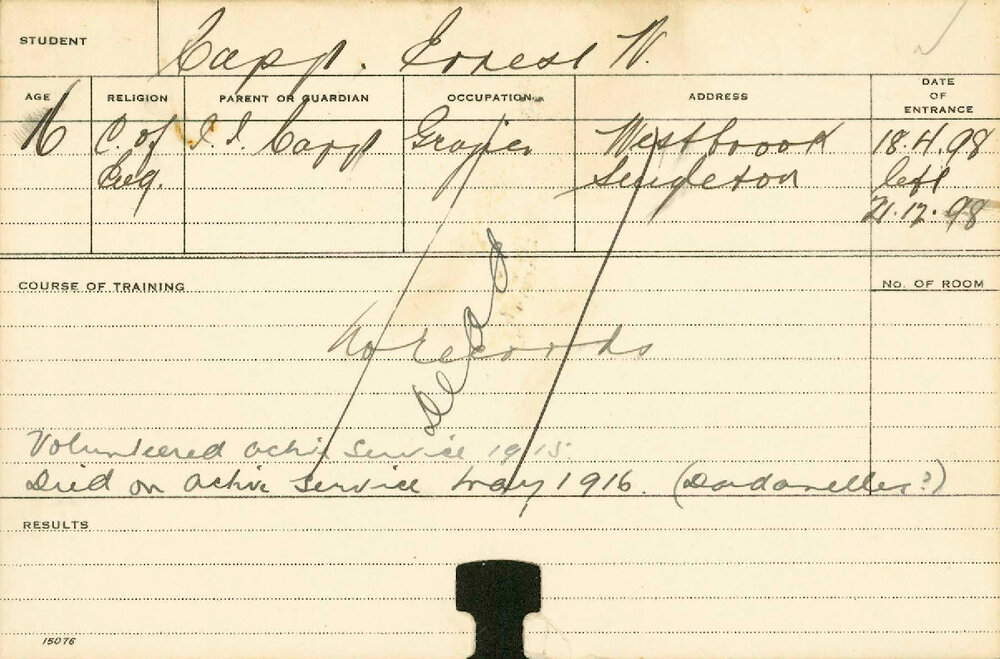 STUDENT Capp. Ernest W.
AGE RELIGION PARENT OR GUARDIAN OCCUPATION ADDRESS DATE OF ENTRANCE
16 C. of J. J. Capp Grazier Westbrook 18.4.98
Eng. Singleton left
21.12.98
COURSE OF TRAINING No. OF ROOM
No records
Dead
Volunteered active service 1915
Died on active service May 1916. (Dardanelles?)
RESULTS
15076